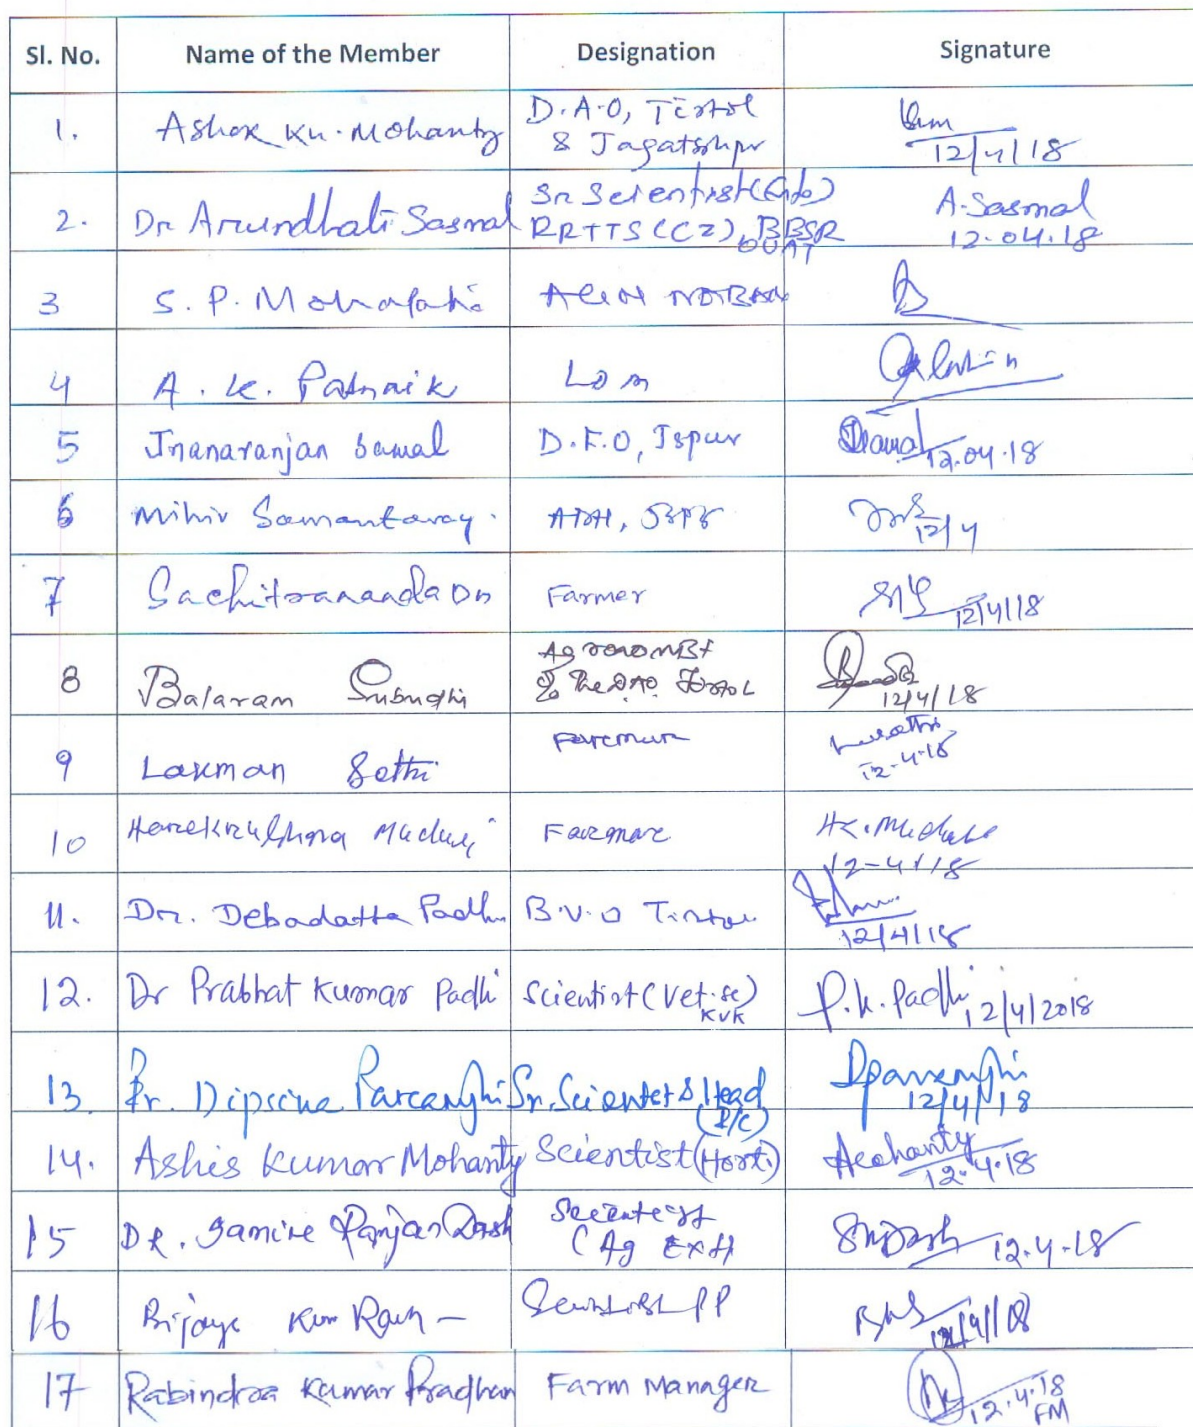 Sl. No. Name of the Member Designation Signature
1. Ashok Ku. Mohanty D.A.O, Tirtol
& Jagatsingpr
12/4/18
2. Dr Arundhati Sasmal Sr Scientist
RRTTS (CZ), BBSR
OUAT
A. Sasmal
12.04.18
3 S. P. Mohapatra
4 A. K. Patnaik LDM
5 Jnanaranjan Samal D.F.O, Jspur
12.04.18
6 Mihir Samantaray. ADH,
12/4
7 Sachitrananda Das Farmer
12/4/18
8 Balaram Subudhi Agronomist
% The DAO, Tirtol
12/4/18
9 Laxman Sethi
12-4-18
10 Harekrushna Farmare
12-4-18
11. Dr. Debadatta Padhi B.V.O Tirtol
12/4/18
12. Dr Prabhat Kumar Padhi Scientist (Vet. Sc)
KVK
P.K. Padhi 12/4/2018
13. Dr. Sr. Scientist & Head
(I/C)
12/4/18
14. Ashis Kumar Mohanty Scientist (Hort.)
12.4.18
15 DR. Ranjan Dash Scientist
(Ag Extn
12.4.18
16 Scientist PP
17 Rabindra Kumar Pradhan Farm Manager
12.4.18
FM